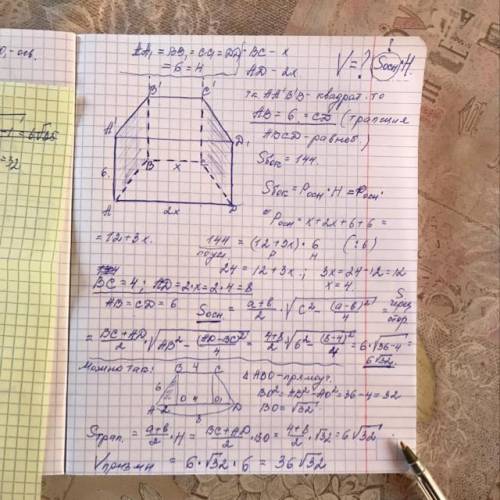 AA₁ = BB₁ = CC₁ = DD₁ BC - x
= 6 = H AD - 2x
V = ? Sосн·H.
т.к. AA'B'B - квадрат. то
AB = 6 = CD (трапеция
ABCD - равноб.)
Sбок = 144.
Sбок = Pосн · H = Pосн·
= Pосн = x + 2x + 6 + 6 =
B' C'
A' D₁
B x C
6
A 2x D
= 12 + 3x. 144 = (12 + 3x) · 6 (:6)
P H
24 = 12 + 3x; 3x = 24 - 12 = 12
x = 4
BC = 4; AD = 2·x = 2·4 = 8
AB = CD = 6
Sосн = (a+b)/2 · √(c² - (a-b)²/4) = S через стор.
= (BC+AD)/2 · √(AB² - (AD-BC)²/4) = (4+8)/2 √(6² - (8-4)²/4) = 6·√(36-4) =
6√32
Можно так:
B 4 C
6
A 2 O 4 O D
8
△ ABO - прямоуг.
BO² = AB² - AO² = 36 - 4 = 32
BO = √32
Sтрап. = (a+b)/2 · H = (BC+AD)/2 · BO = (4+8)/2 · √32 = 6√32
Vпризмы = 6·√32·6 = 36√32